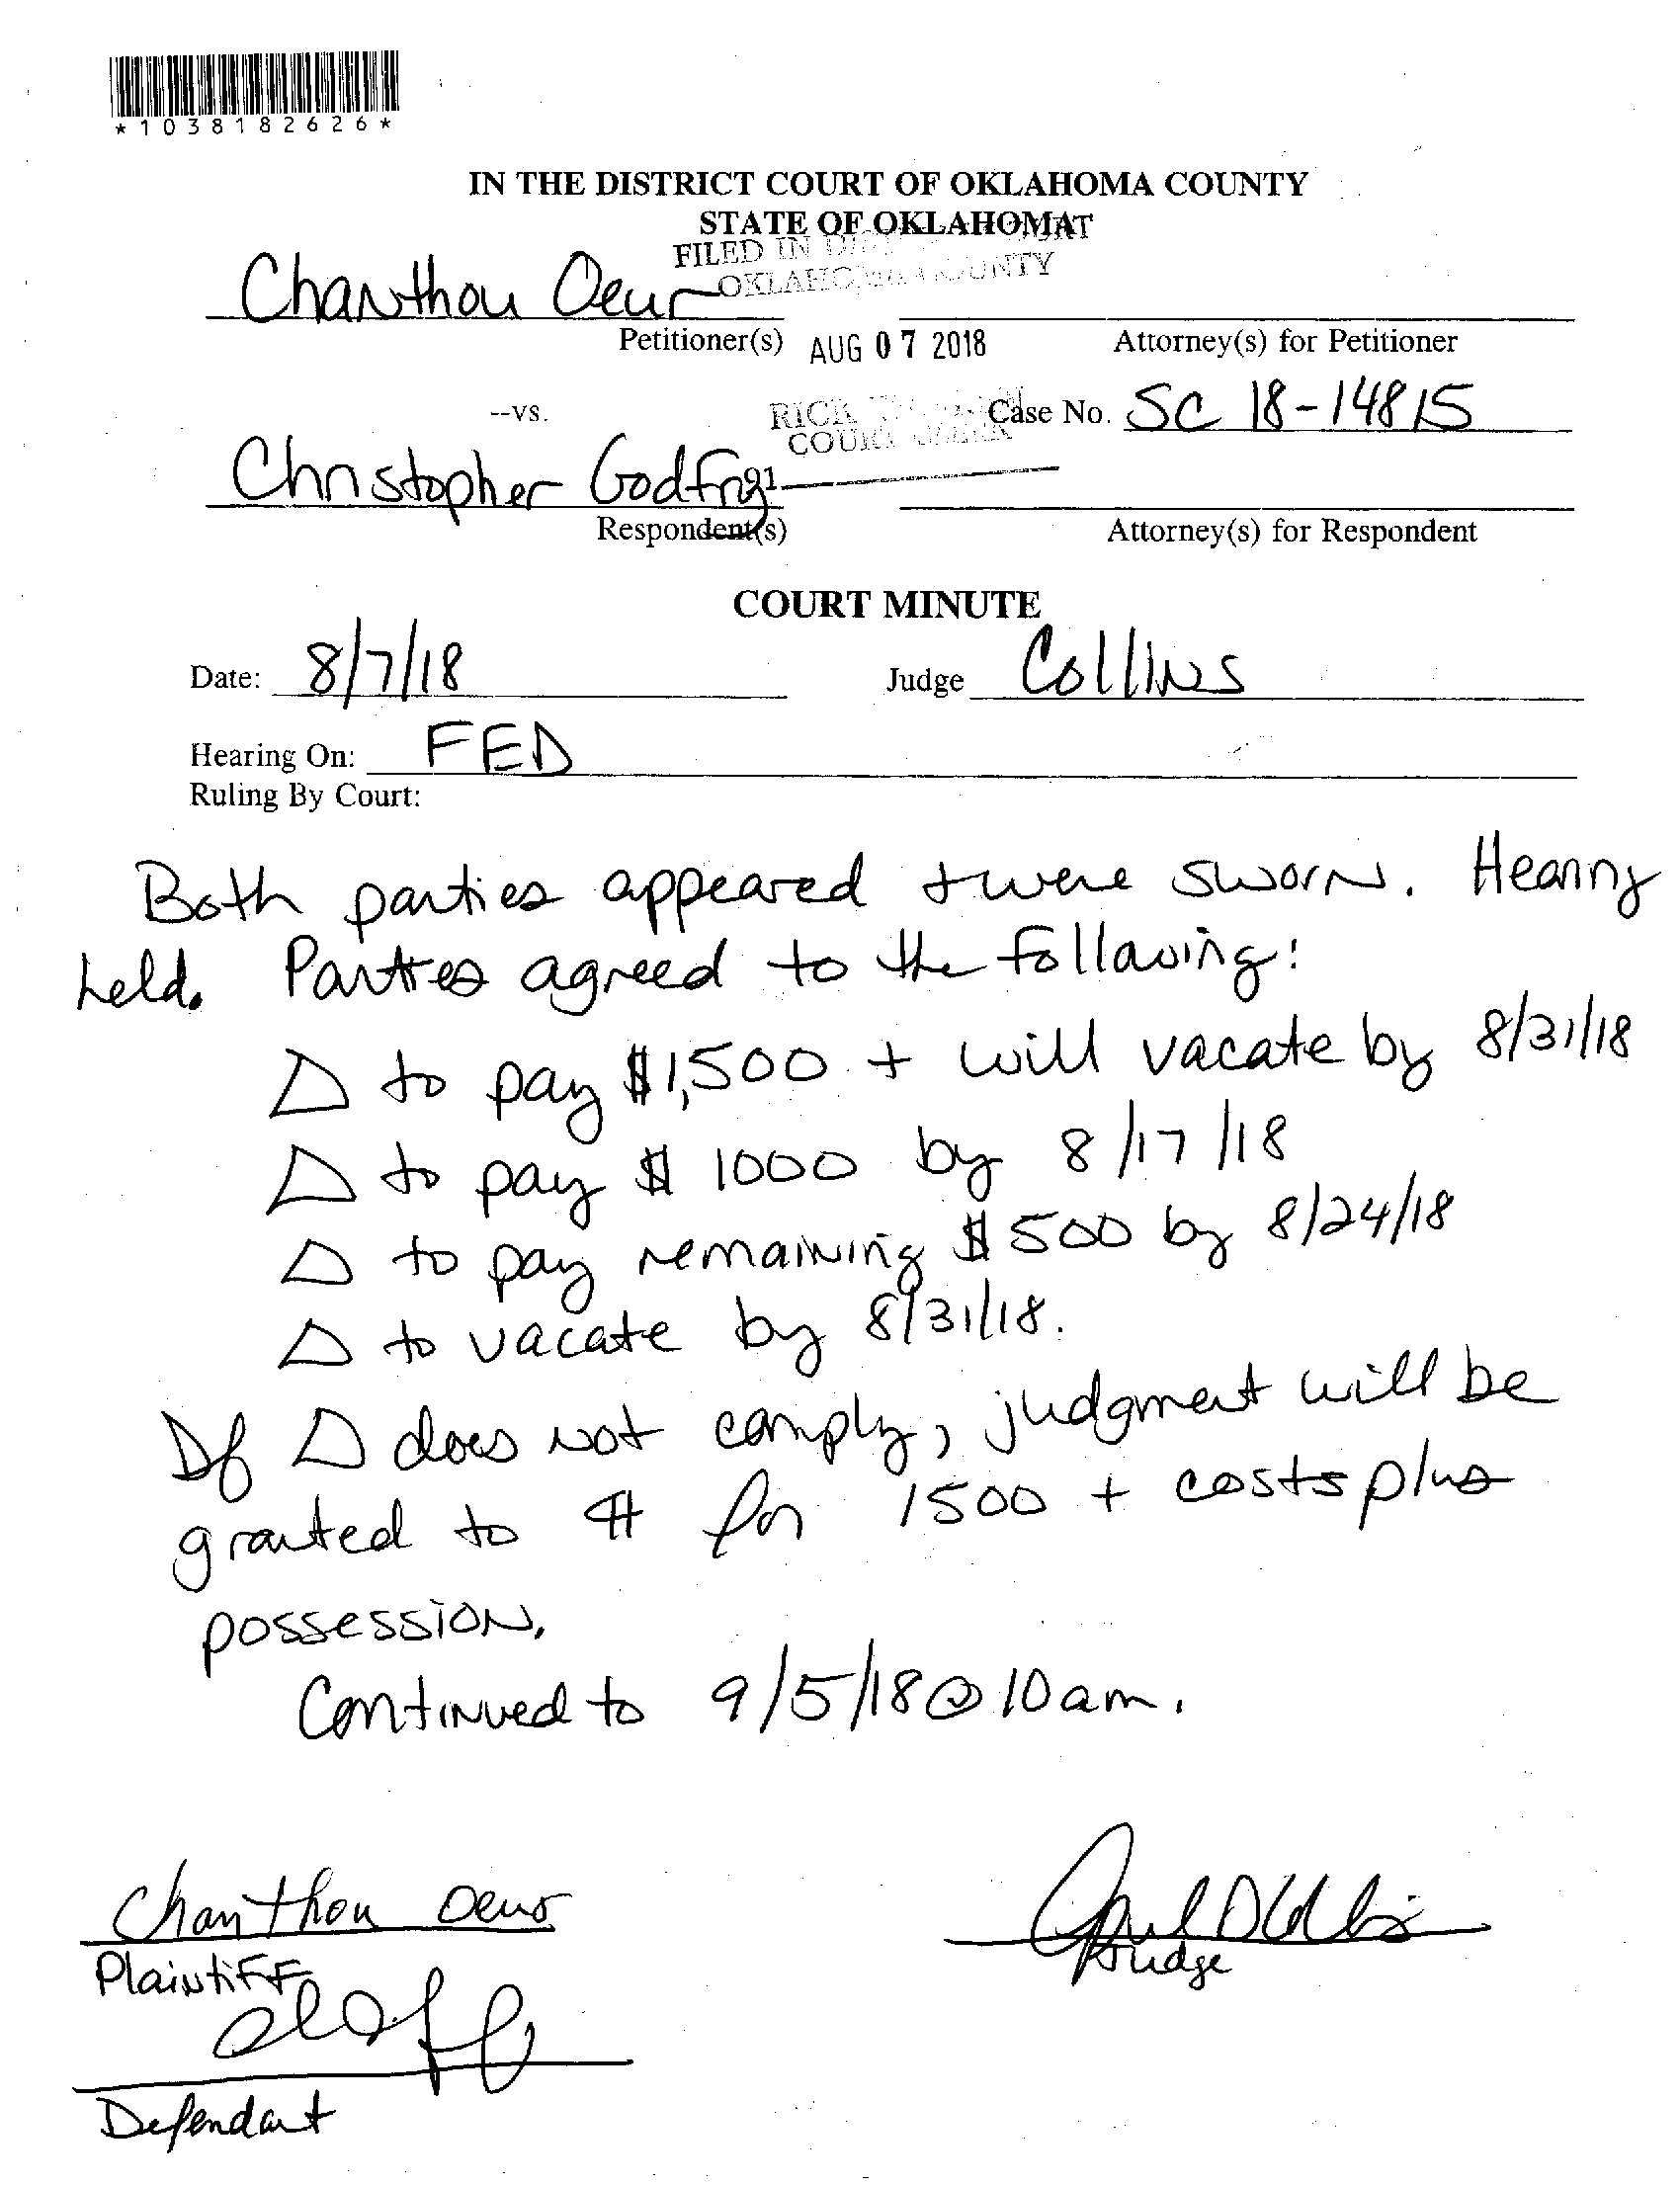 *1038182626*
IN THE DISTRICT COURT OF OKLAHOMA COUNTY
STATE OF OKLAHOMA
FILED IN
OKLAHOMA COUNTY
Chanthou Oeur
Petitioner(s)
AUG 07 2018
Attorney(s) for Petitioner
--vs.
RICK
Case No. SC 18-14815
COURT CLERK
Christopher Godfrey
91
Respondent(s)
Attorney(s) for Respondent
COURT MINUTE
Date: 8/7/18
Judge Collins
Hearing On: FED
Ruling By Court:
Both parties appeared + were sworn. Hearing
held. Parties agreed to the following:
Δ to pay $1,500 + will vacate by 8/31/18
Δ to pay $ 1000 by 8/17/18
Δ to pay remaining $500 by 8/24/18
Δ to vacate by 8/31/18.
If Δ does not comply, judgment will be
granted to π for 1500 + costs plus
possession.
Continued to 9/5/18 @ 10am.
Chanthou Oeur
Plaintiff
Judge
Defendant